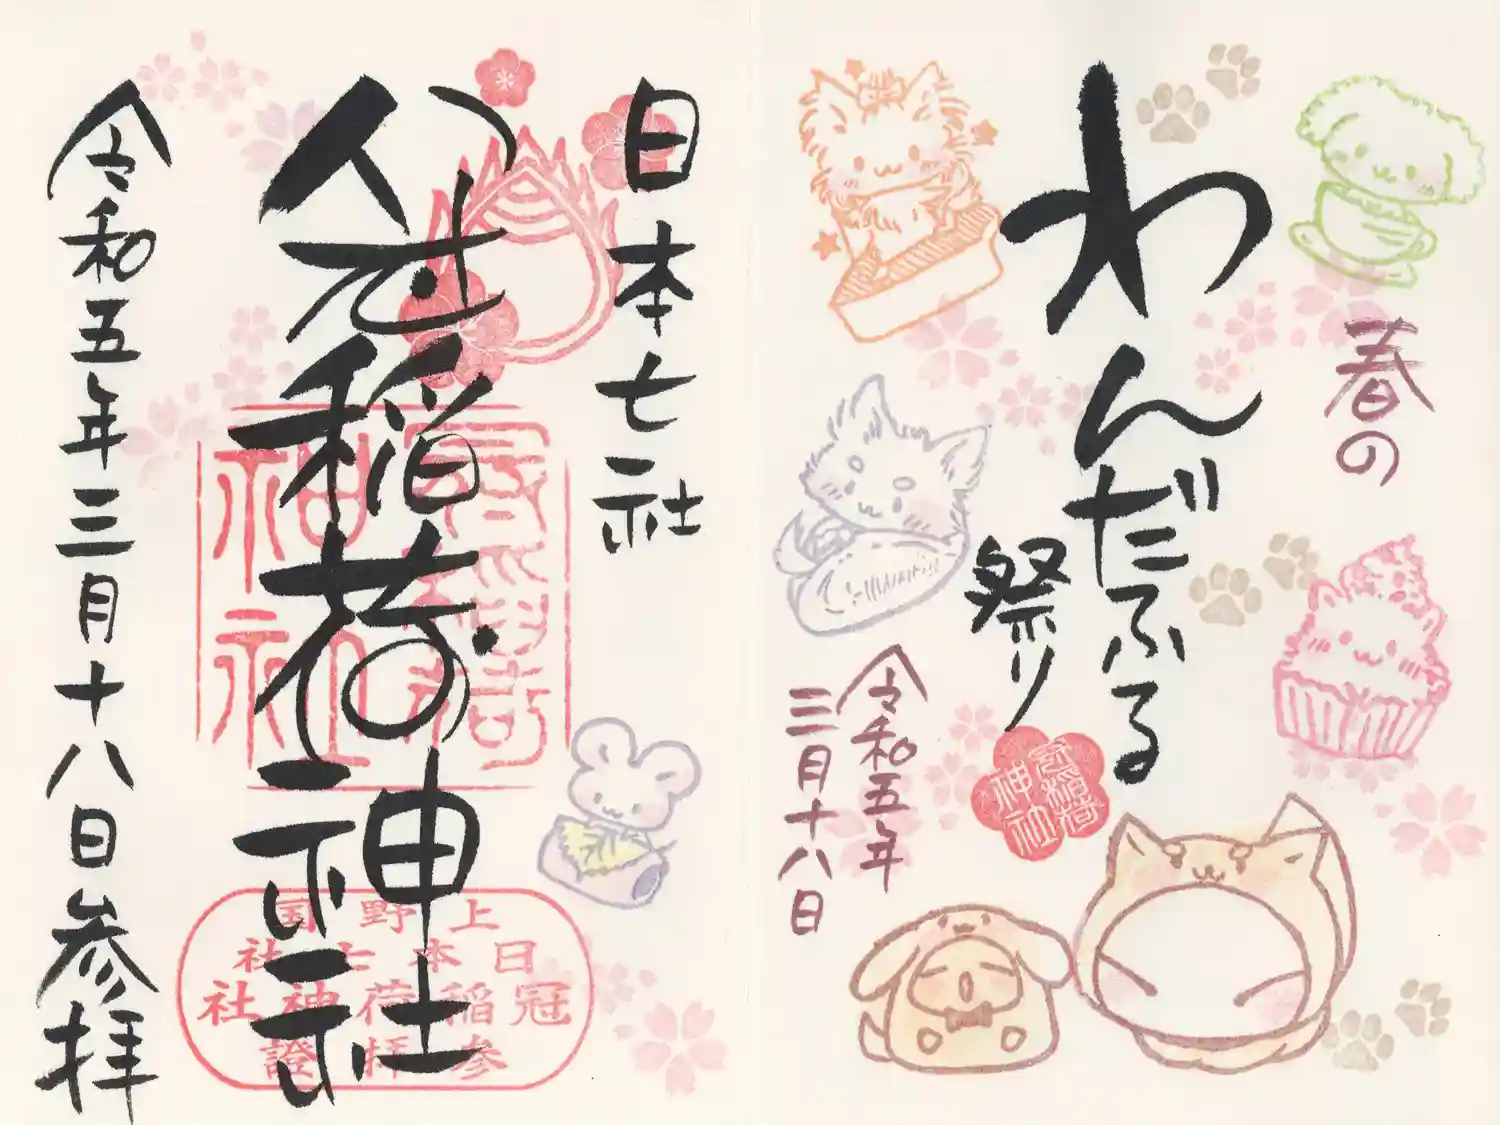 春の
わんだふる
祭り
冠稲荷
神社
令和五年
三月十八日
日本七社
冠稲荷神社
令和五年三月十八日参拝
上野国
日本七社
冠稲荷神社
参拝證